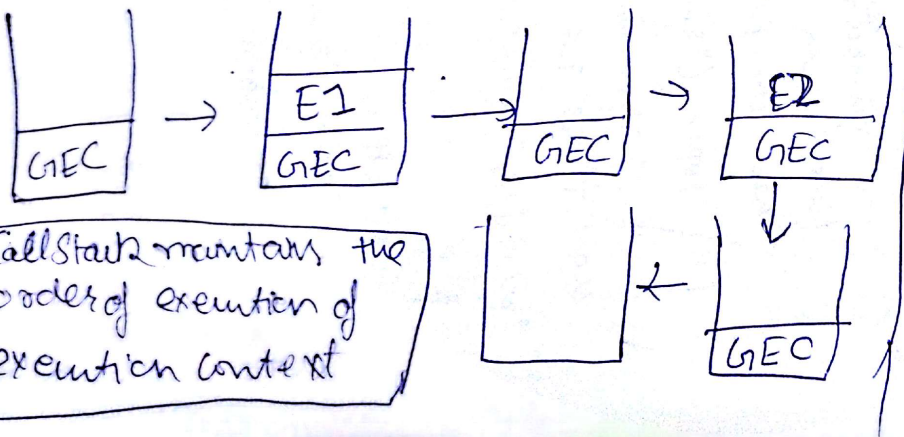 E1
E2
GEC
GEC
GEC
GEC
CallStack maintains the
order of execution of
execution context
GEC